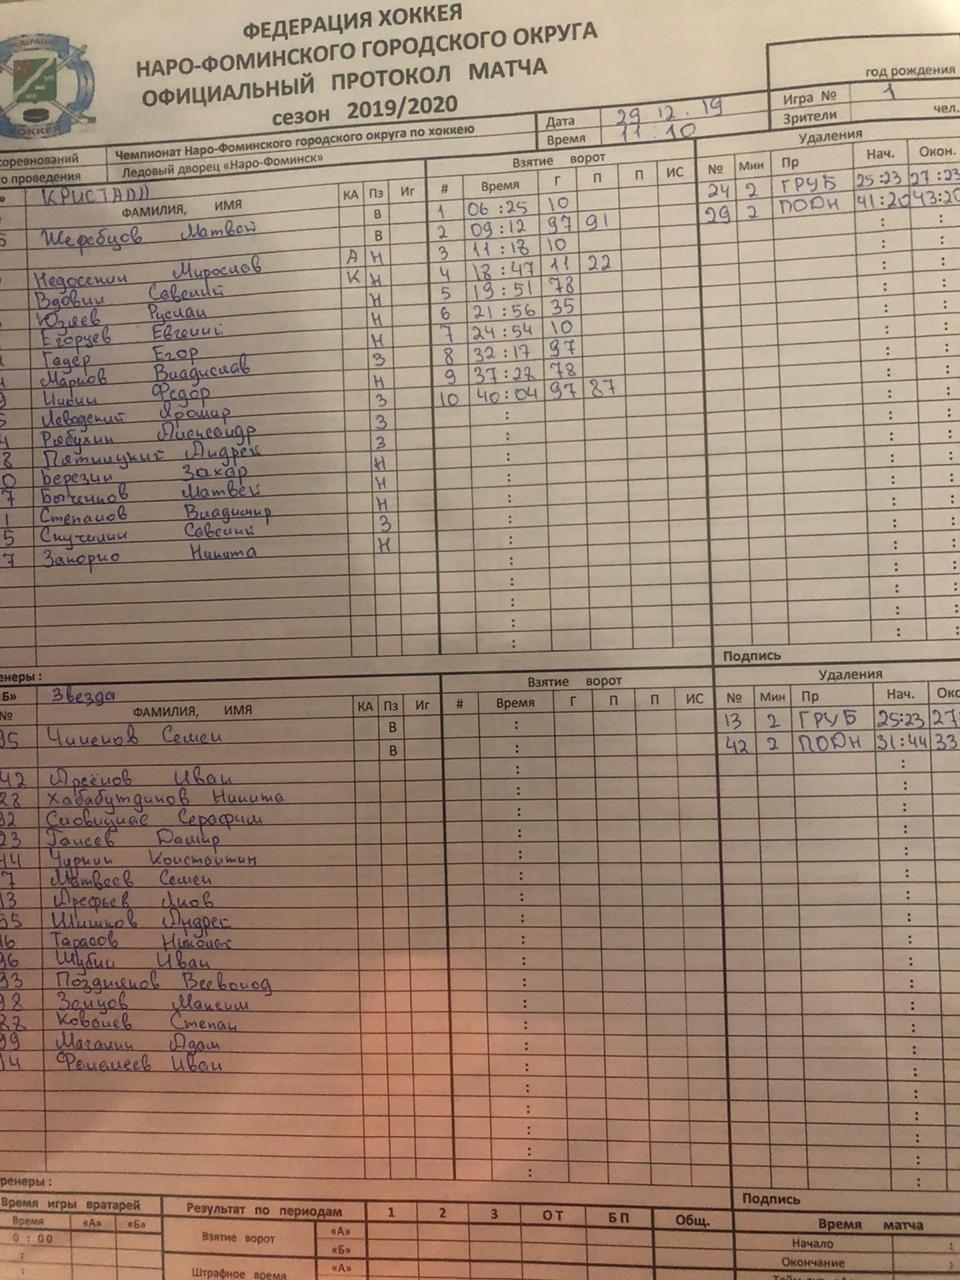 ФЕДЕРАЦИЯ ХОККЕЯ
НАРО-ФОМИНСКОГО ГОРОДСКОГО ОКРУГА
ОФИЦИАЛЬНЫЙ ПРОТОКОЛ МАТЧА
сезон 2019/2020
ХОККЕЯ
год рождения
Дата 29.12.19 Игра № 1
Время 11:10 Зрители чел.
соревнований Чемпионат Наро-Фоминского городского округа по хоккею
проведения Ледовый дворец «Наро-Фоминск»
КРИСТАЛЛ Взятие ворот Удаления
ФАМИЛИЯ, ИМЯ КА Пз Иг # Время Г П П ИС № Мин Пр Нач. Окон.
Жеребцов Матвей В 1 06:25 10 24 2 ГРУБ 25:23 27:23
В 2 09:12 97 91 29 2 ПОДН 41:20 43:20
Недосекин Мирослав А Н 3 11:18 10
Вдовин Савелий К Н 4 18:47 11 22
Юзяев Руслан Н 5 19:51 78
Егорцев Евгений Н 6 21:56 35
Гадер Егор Н 7 24:54 10
Марков Владислав З 8 32:17 97
Федор Н 9 37:28 78
Яромир З 10 40:04 97 87
Рябухин Александр З
Пятницкий Андрей З
Березин Захар Н
Бычинов Матвей Н
Степанов Владимир Н
Скучилин Савелий З
Никита Н
Подпись
тренеры :
Б» Звезда Взятие ворот Удаления
№ ФАМИЛИЯ, ИМЯ КА Пз Иг # Время Г П П ИС № Мин Пр Нач. Око
95 Чиненов Семен В 13 2 ГРУБ 25:23 27:
В 42 2 ПОДН 31:44 33
42 Арсёнов Иван
Хабабутдинов Никита
Серафим
23 Гансев Дамир
44 Чуркин Константин
7 Матвеев Семен
13 Арефьев Яков
Шишков Андрей
Тарасов Николай
96 Шубин Иван
93 Поздняков Всеволод
98 Зайцов Максим
Ковалев Степан
99 Магалин Адам
14 Иван
тренеры :
Подпись
Время игры вратарей Результат по периодам 1 2 3 ОТ БП Общ. Время матча
Время «А» «Б» Взятие ворот «А» Начало :
0 : 00 «Б» Окончание :
Штрафное время «А»